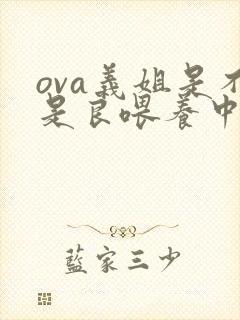 ova义姐是不
是良喂养中
蓝家三少